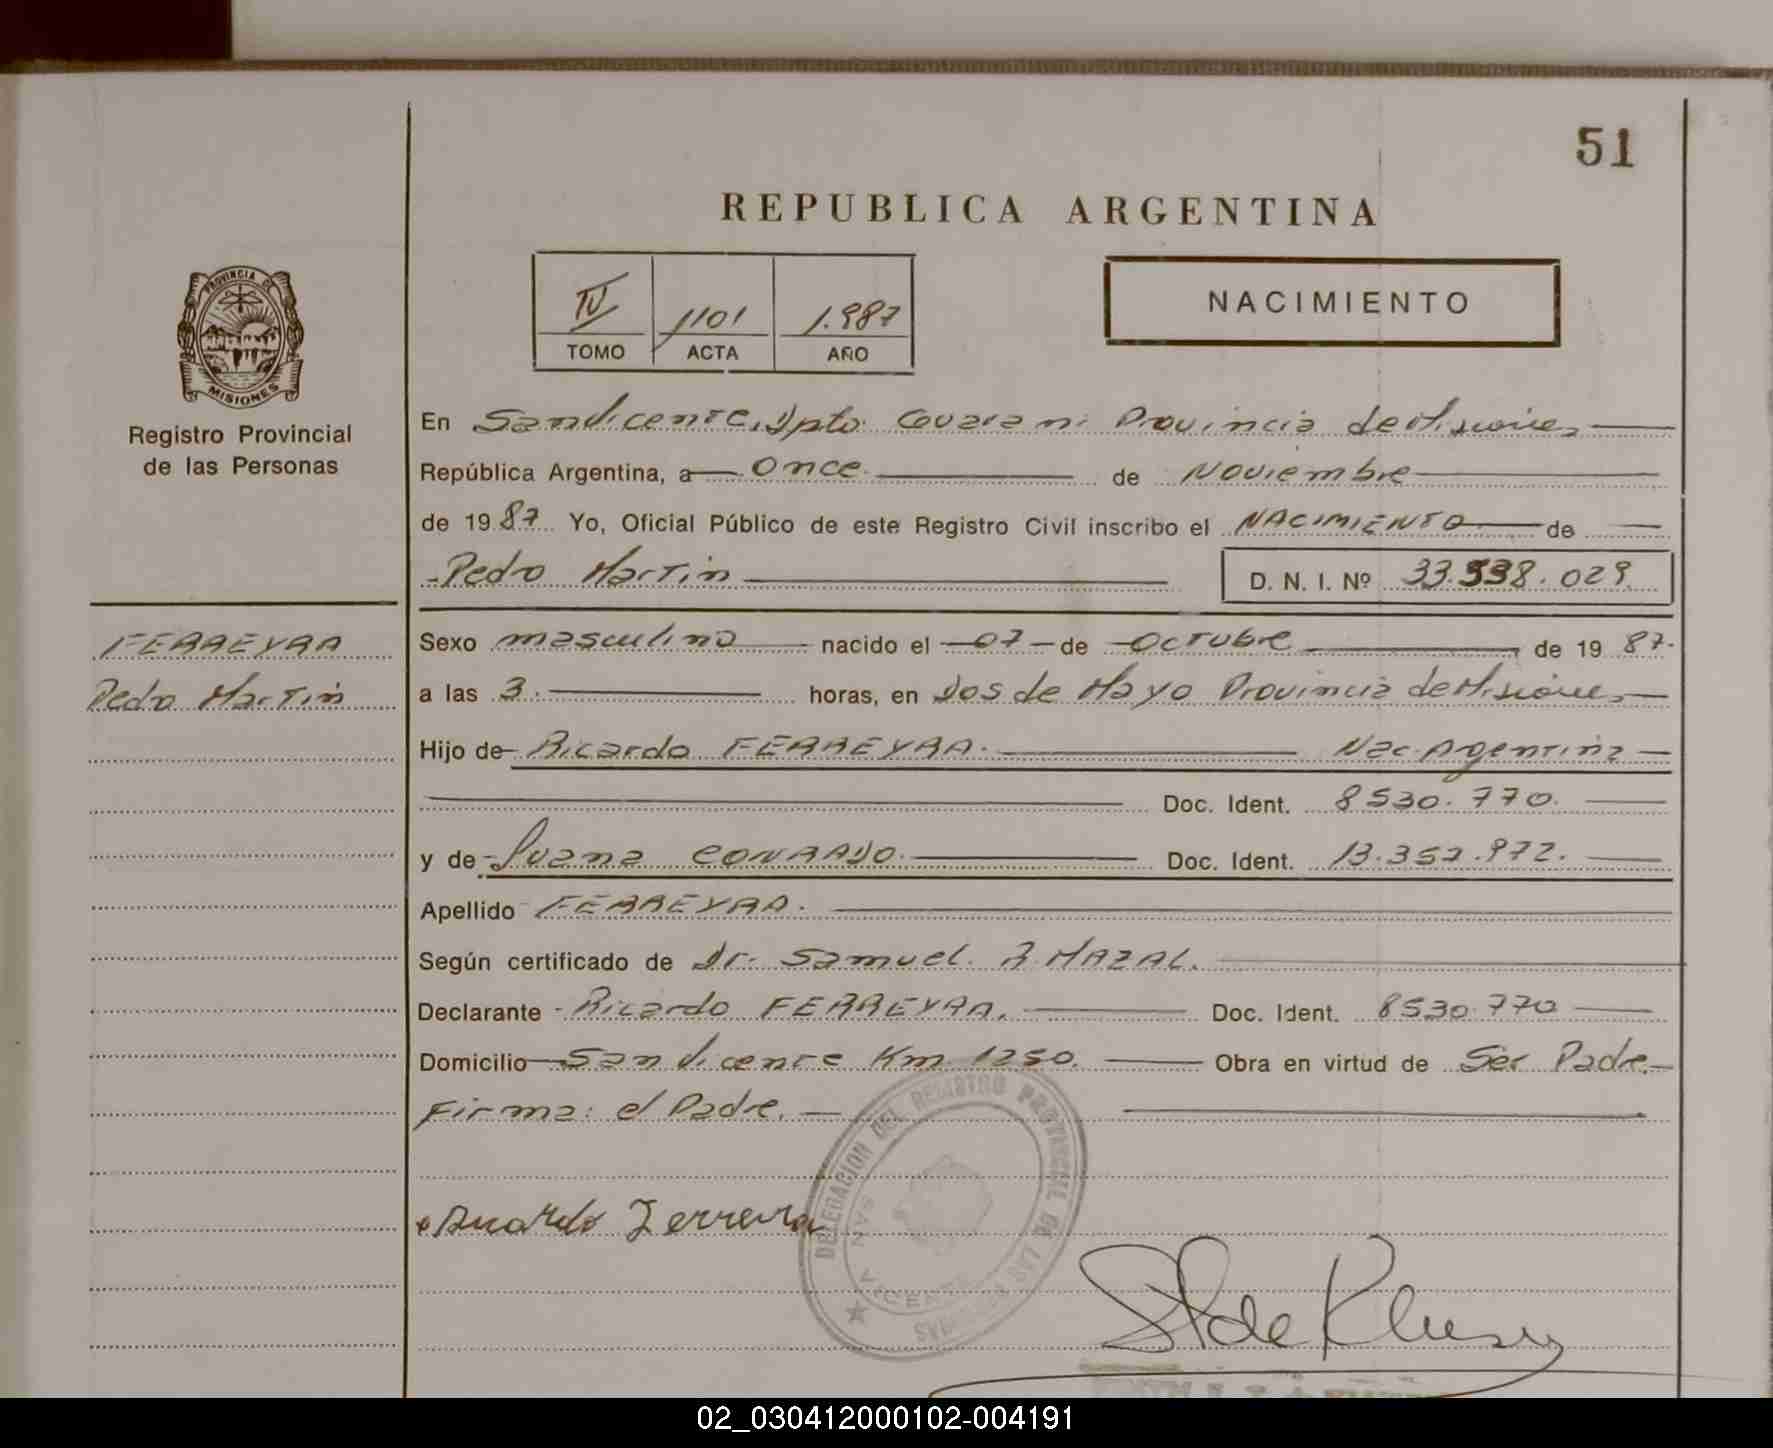 51
REPUBLICA ARGENTINA
IV 1101 1.987
TOMO ACTA AÑO
NACIMIENTO
PROVINCIA DE
MISIONES
Registro Provincial
de las Personas
En San Vicente, Dpto. Guarani Provincia de Misiones
República Argentina, a once de Noviembre
de 19 87 Yo, Oficial Público de este Registro Civil inscribo el NACIMIENTO de
Pedro Martin D. N. I. Nº 33.538.029
FERREYRA
Pedro Martin
Sexo masculino nacido el 07 de Octubre de 19 87.
a las 3. horas, en Dos de Mayo Provincia de Misiones
Hijo de Ricardo FERREYRA. Nac. Argentina
Doc. Ident. 8530.770.
y de Juana CONRADO. Doc. Ident. 13.352.972.
Apellido FERREYRA.
Según certificado de Dr. Samuel. R. MAZAL.
Declarante Ricardo FERREYRA. Doc. Ident. 8530.770
Domicilio San Vicente Km 1250. Obra en virtud de Ser Padre.
Firma: el Padre.
DELEGACION DEL REGISTRO PROVINCIAL DE LAS PERSONAS
SAN VICENTE
02_030412000102-004191